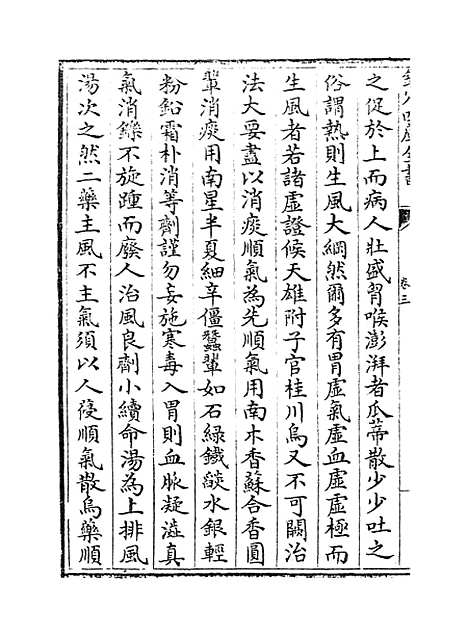 卷三
之促於上而病人壯盛胷喉澎湃者瓜蒂散少少吐之
俗謂熱則生風大綱然爾多有胃虛氣虛血虛虛極而
生風者若諸虛證候天雄附子官桂川烏又不可闕治
法大要盡以消痰順氣為先順氣用南木香蘇合香圓
輩消痰用南星半夏細辛僵蠶輩如石綠鐵燄水銀輕
粉鉛霜朴消等劑謹勿妄施寒毒入胃則血脈凝澁真
氣消鑠不旋踵而廢人治風良劑小續命湯為上排風
湯次之然二藥主風不主氣須以人葠順氣散烏藥順